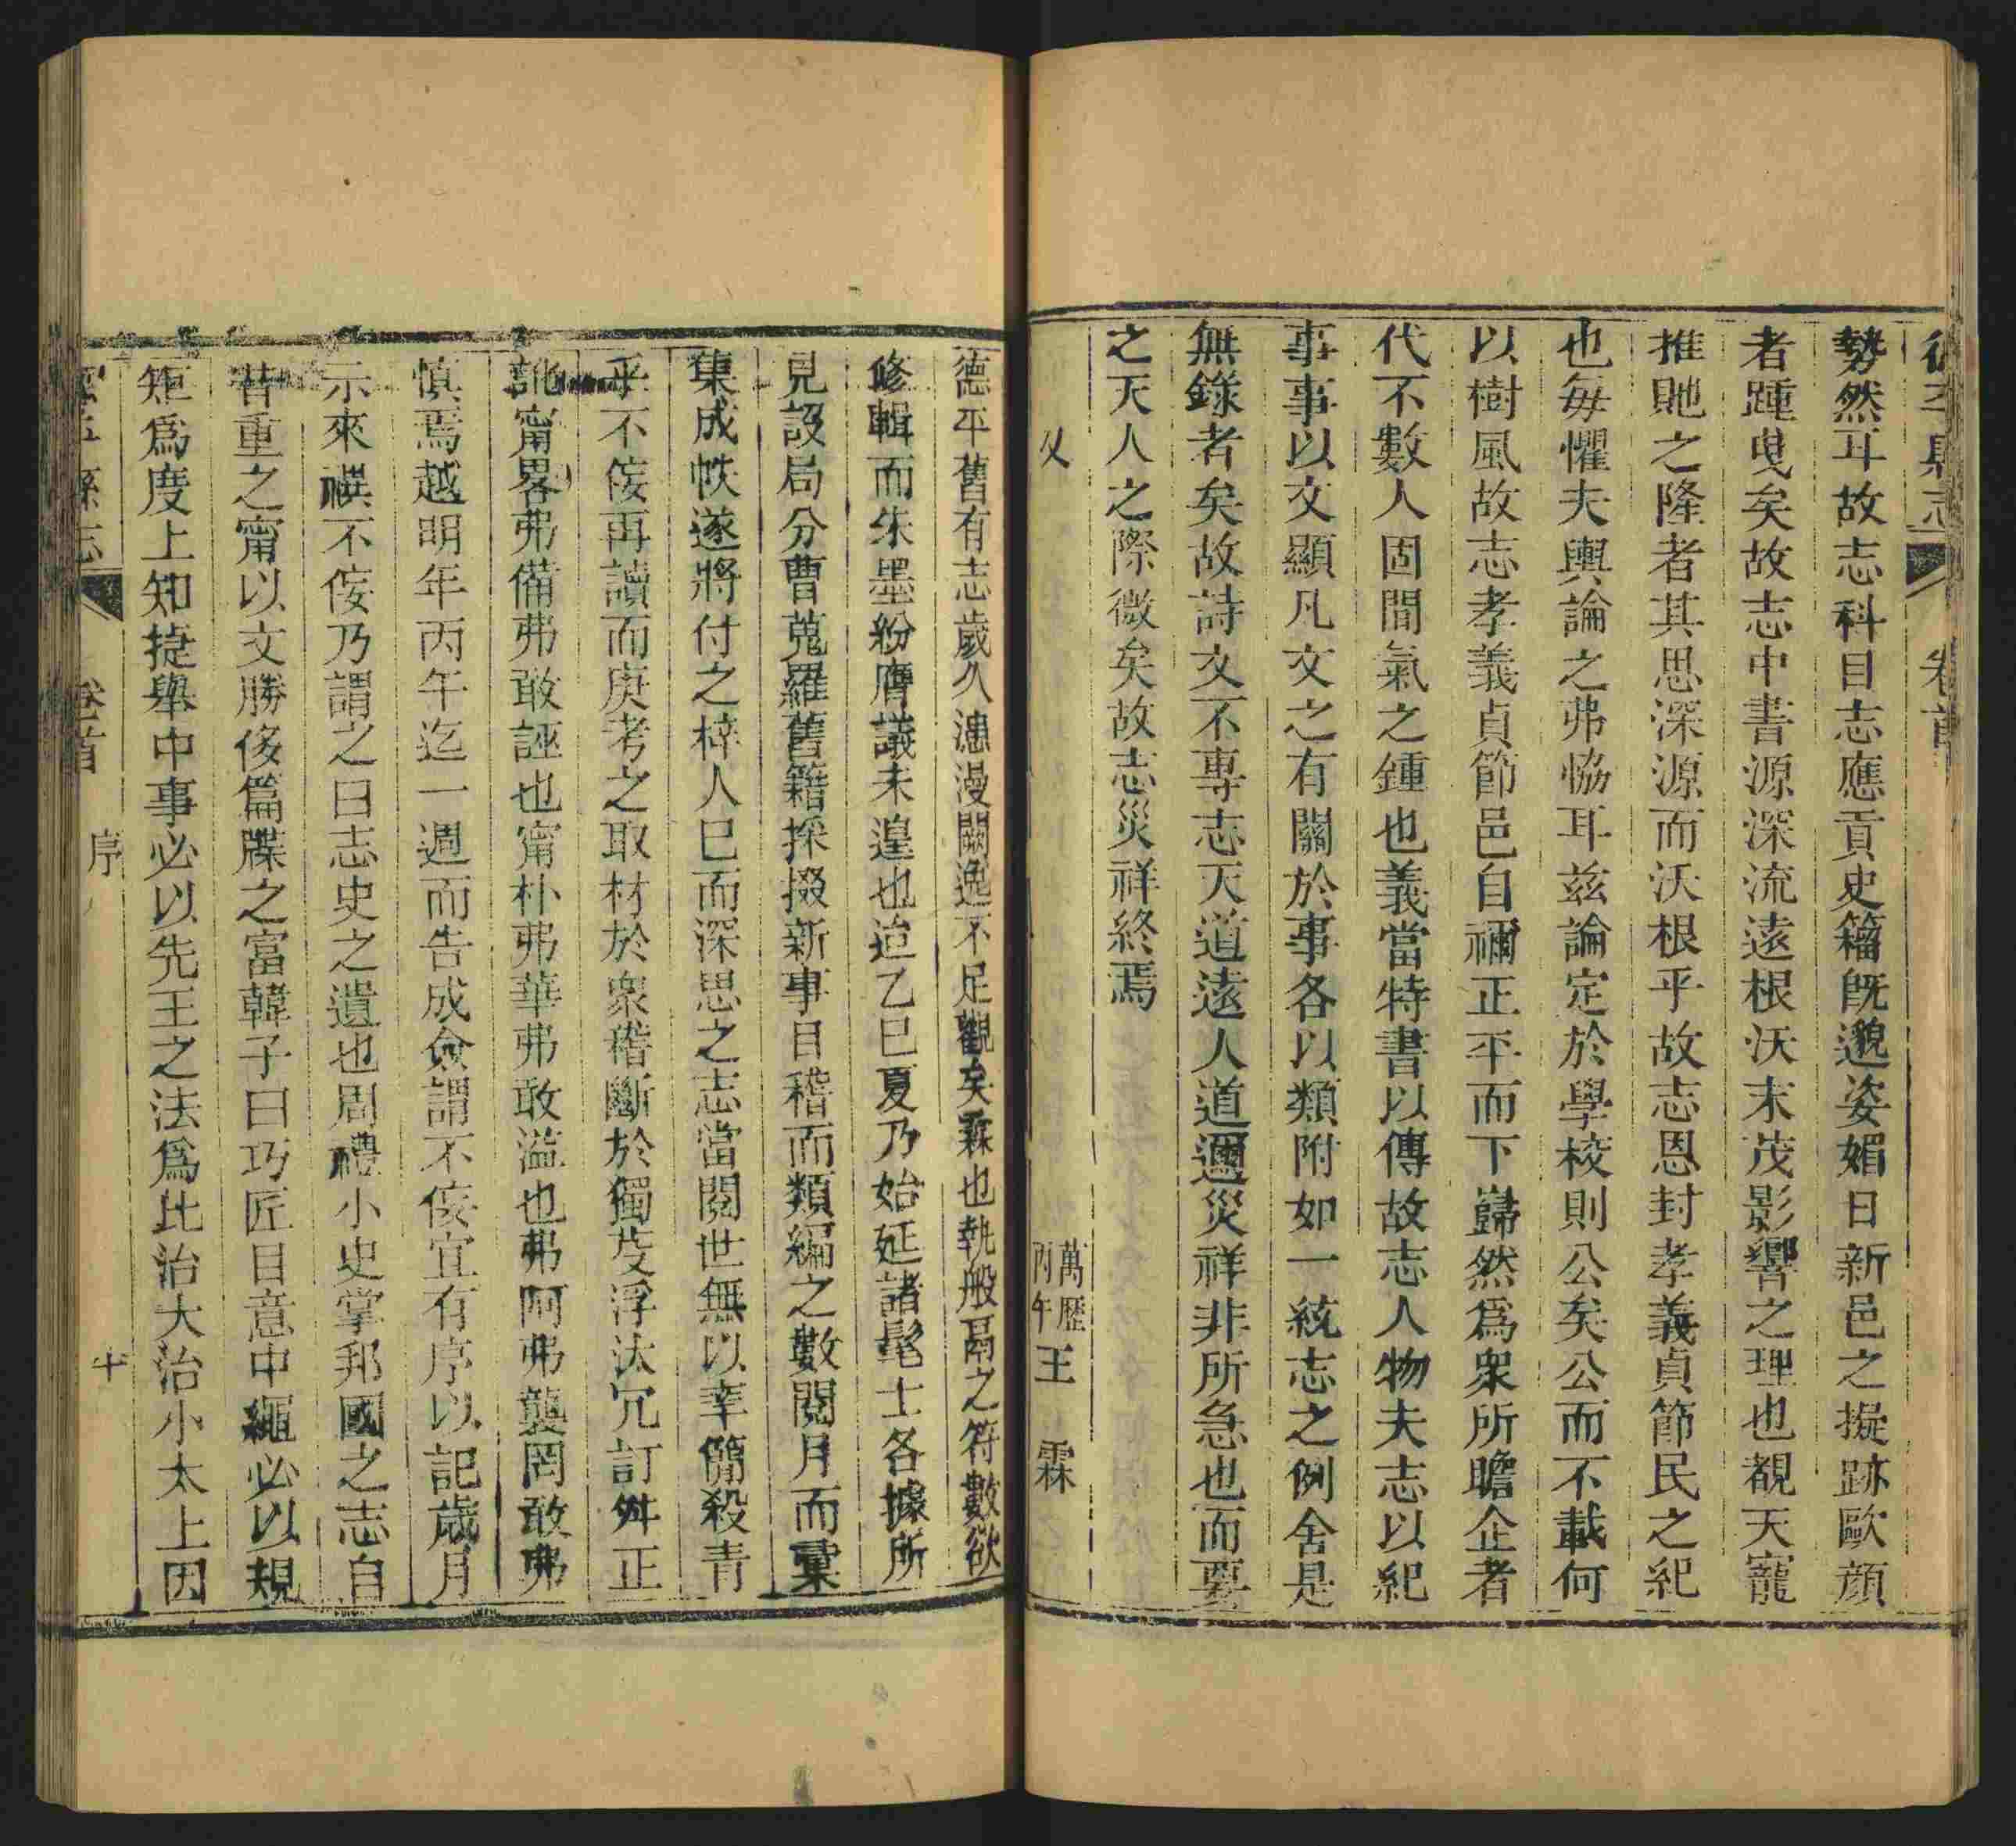 德平縣志 卷首
勢然耳故志科目志應貢史籍既邈姿媚日新邑之擬跡歐顔
者踵曳矣故志中書源深流遠根沃末茂影響之理也覩天寵
推貤之隆者其思深源而沃根乎故志恩封孝義貞節民之紀
也每懼夫輿論之弗恊耳兹論定於學校則公矣公而不載何
以樹風故志孝義貞節邑自禰正平而下巋然爲衆所瞻企者
代不數人固間氣之鍾也義當特書以傳故志人物夫志以紀
事事以文顯凡文之有關於事各以類附如一統志之例舍是
無錄者矣故詩文不專志天道遠人道邇災祥非所急也而要
之天人之際微矣故志災祥終焉
又 萬歷丙午 王 霖
德平舊有志歲久漶漫闕逸不足觀矣霖也執般鬲之符數欲
修輯而朱墨紛膺議未遑也迨乙巳夏乃始延諸髦士各據所
見設局分曹蒐羅舊籍採掇新事目稽而類編之數閱月而彙
集成帙遂將付之梓人巳而深思之志當閱世無以率僃殺青
乎不侫再讀而庚考之取材於衆稽斷於獨芟浮汰冗訂舛正
訛甯畧弗備弗敢誣也甯朴弗華弗敢溢也弗阿弗襲罔敢弗
慎焉越明年丙午迄一週而告成僉謂不侫宜有序以記歲月
示來禩不侫乃謂之曰志史之遺也周禮小史掌邦國之志自
昔重之甯以文勝侈篇牒之富韓子曰巧匠目意中繩必以規
矩爲度上知捷舉中事必以先王之法爲比治大治小太上因
德平縣志 卷首 序 十